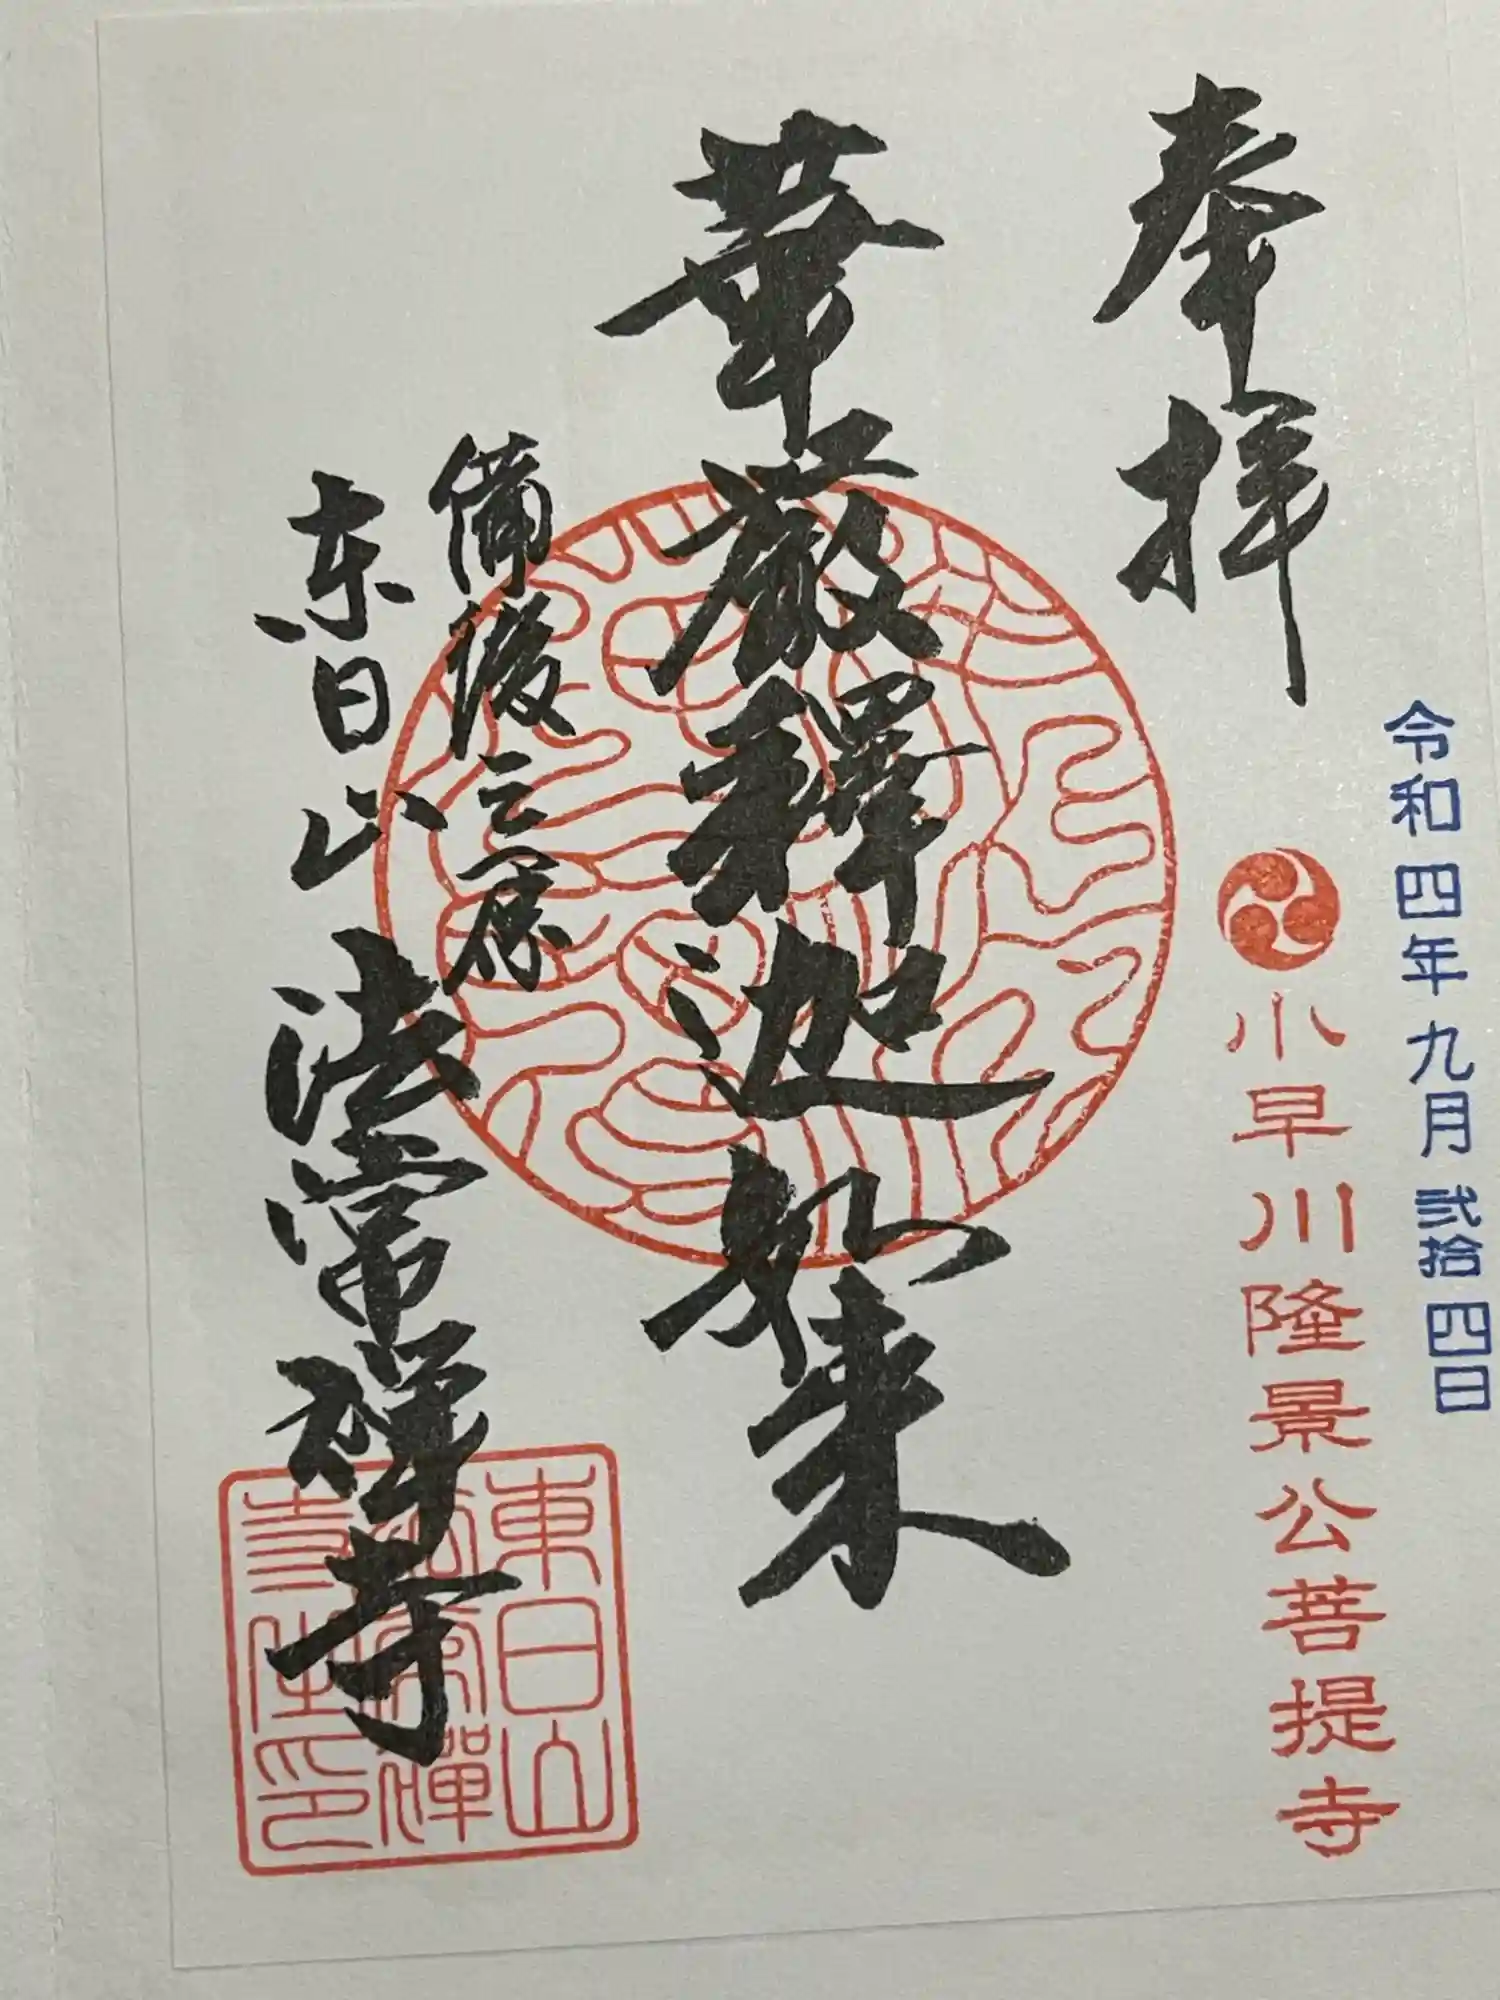 令和四年九月弐拾四日
小早川隆景公菩提寺
奉拝
華厳釋迦如来
備後三原
東日山 法常禅寺
東日山
法常禅
寺住印